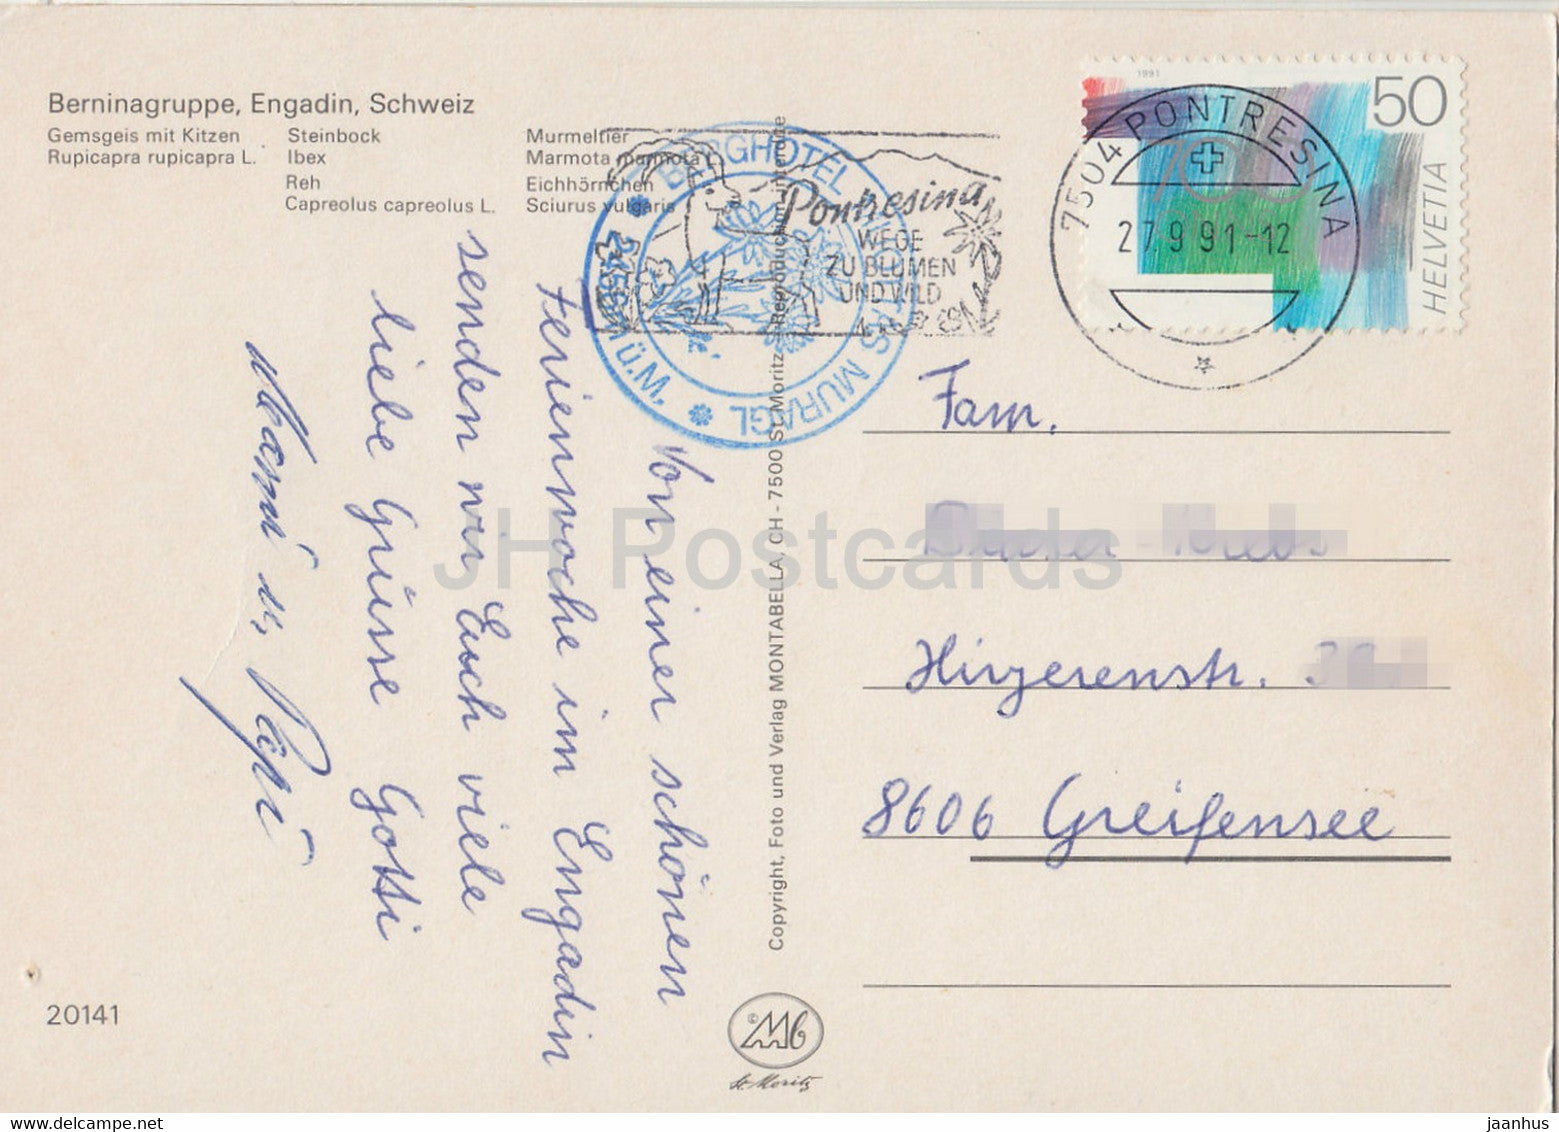 Berninagruppe, Engadin, Schweiz
Gemsgeis mit Kitzen
Rupicapra rupicapra L.
Steinbock
Ibex
Reh
Capreolus capreolus L.
Murmeltier
Marmota marmota L.
Eichhörnchen
Sciurus vulgaris
BERGHOTEL MUOTTAS MURAGL
2456 M ü.M.
Pontresina
WEGE
ZU BLUMEN
UND WILD
7504 PONTRESINA
27.9.91-12
1991
50
HELVETIA
700
Von einer schönen
Ferienwoche im Engadin
senden wir Euch viele
liebe Grüsse Gotti
Mami u. Papi
Copyright, Foto und Verlag MONTABELLA, CH - 7500 St. Moritz - Reproduction interdite
Fam.
Hirzerenstr.
8606 Greifensee
20141
© Mb
St. Moritz
JH Postcards
www.delcampe.net
jaanhus